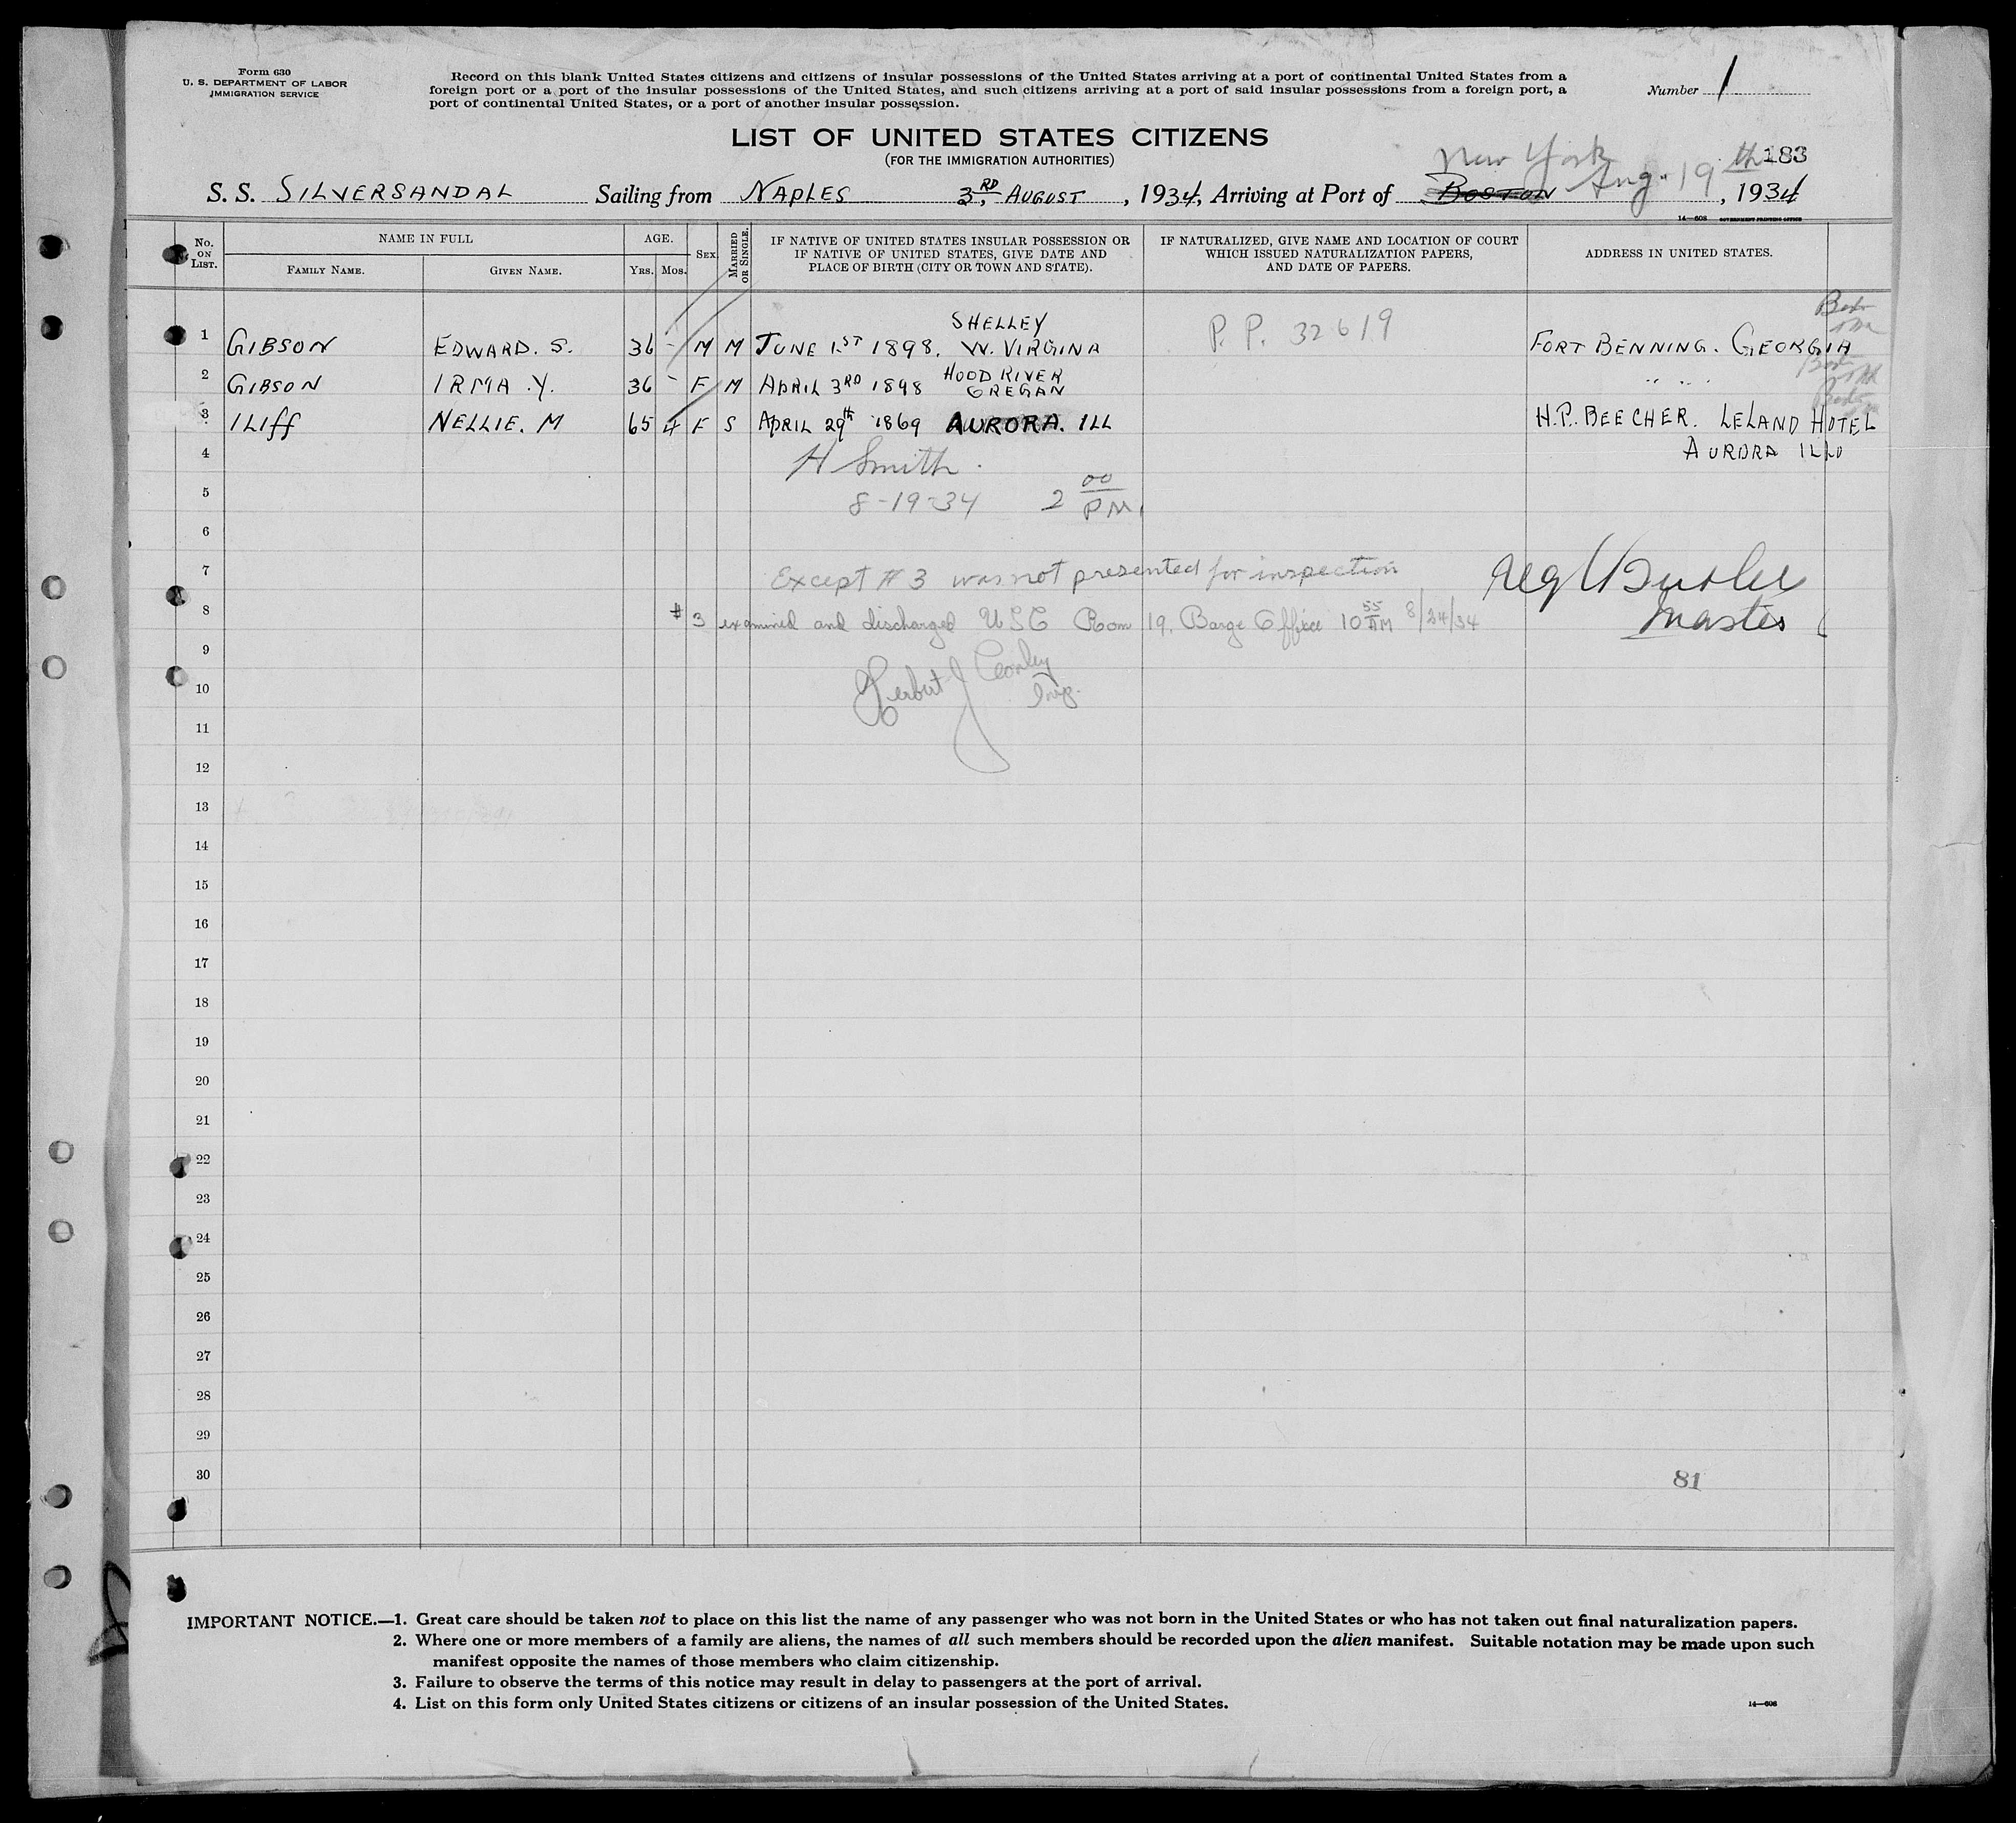 Form 630
U. S. DEPARTMENT OF LABOR
IMMIGRATION SERVICE
Record on this blank United States citizens and citizens of insular possessions of the United States arriving at a port of continental United States from a
foreign port or a port of the insular possessions of the United States, and such citizens arriving at a port of said insular possessions from a foreign port, a
port of continental United States, or a port of another insular possession.
Number 1
LIST OF UNITED STATES CITIZENS
(FOR THE IMMIGRATION AUTHORITIES)
New York
183
S. S. SILVERSANDAL Sailing from NAPLES 3RD, AUGUST, 1934, Arriving at Port of BOSTON Aug. 19th, 1934
14—608 GOVERNMENT PRINTING OFFICE
No. ON LIST. NAME IN FULL AGE. SEX MARRIED OR SINGLE. IF NATIVE OF UNITED STATES INSULAR POSSESSION OR IF NATIVE OF UNITED STATES, GIVE DATE AND PLACE OF BIRTH (CITY OR TOWN AND STATE). IF NATURALIZED, GIVE NAME AND LOCATION OF COURT WHICH ISSUED NATURALIZATION PAPERS, AND DATE OF PAPERS. ADDRESS IN UNITED STATES.
FAMILY NAME. GIVEN NAME. YRS. MOS.
1 GIBSON EDWARD. S. 36 - M M JUNE 1ST 1898. SHELLEY W. VIRGINA P. P. 32619 FORT BENNING. GEORGIA
2 GIBSON IRMA .Y. 36 - F M APRIL 3RD 1898 HOOD RIVER OREGAN " " "
3 ILIFF NELLIE. M 65 4 F S APRIL 29th 1869 AURORA. ILL H.P. BEECHER. LELAND HOTEL
4 H Smith. AURORA ILL
5 8-19-34 2 00 PM.
6
7 Except # 3 was not presented for inspection
8 #3 examined and discharged USC Room 19, Barge Office 10 55 AM 8/24/34 Master
9
10 Herbert J Insp.
11
12
13
14
15
16
17
18
19
20
21
22
23
24
25
26
27
28
29
30 81
IMPORTANT NOTICE.—1. Great care should be taken not to place on this list the name of any passenger who was not born in the United States or who has not taken out final naturalization papers.
2. Where one or more members of a family are aliens, the names of all such members should be recorded upon the alien manifest. Suitable notation may be made upon such
manifest opposite the names of those members who claim citizenship.
3. Failure to observe the terms of this notice may result in delay to passengers at the port of arrival.
4. List on this form only United States citizens or citizens of an insular possession of the United States.
14—608